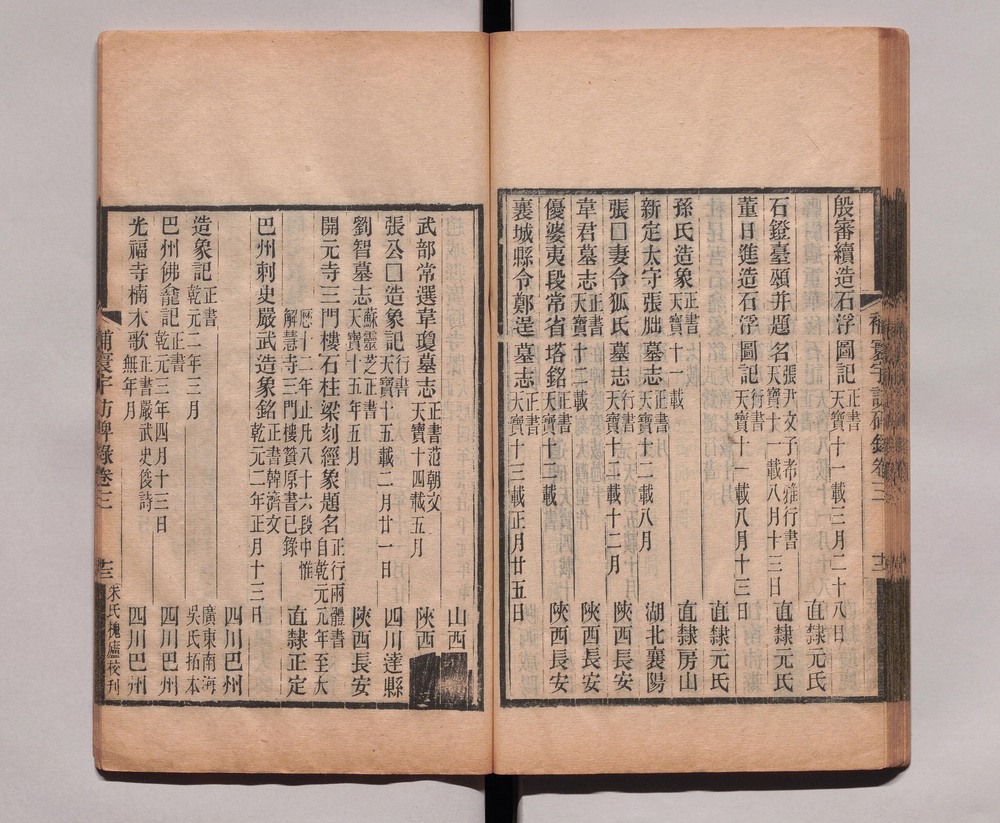 補寰宇訪碑錄卷三
殷審續造石浮圖記正書天寶十一載三月二十八日 直隸元氏
石鐙臺頌并題名張尹文子希雅行書天寶十一載八月十三日 直隸元氏
董日進造石浮圖記行書天寶十一載八月十三日 直隸元氏
孫氏造象正書天寶十一載 直隸房山
新定太守張朏墓志正書天寶十二載八月 湖北襄陽
張□妻令狐氏墓志行書天寶十二載十二月 陝西長安
韋君墓志正書天寶十二載 陝西長安
優婆夷段常省塔銘正書天寶十二載 陝西長安
襄城縣令鄭逞墓志正書天寶十三載正月廿五日
山西
武部常選韋瓊墓志正書范朝文天寶十四載五月 陝西
張公□造象記行書天寶十五載二月廿一日 四川達縣
劉智墓志蘇靈芝正書天寶十五年五月 陝西長安
開元寺三門樓石柱梁刻經象題名正行兩體書自乾元元年至大
曆十二年止凡八十六段中惟解慧寺三門樓贊原書已錄 直隸正定
巴州刺史嚴武造象銘正書韓濟文乾元二年正月十三日
四川巴州
造象記正書乾元二年三月 廣東南海吳氏拓本
巴州佛龕記正書乾元三年四月十三日 四川巴州
光福寺楠木歌正書嚴武史俊詩無年月 四川巴州
補寰宇訪碑錄卷三 十三 朱氏槐廬校刊